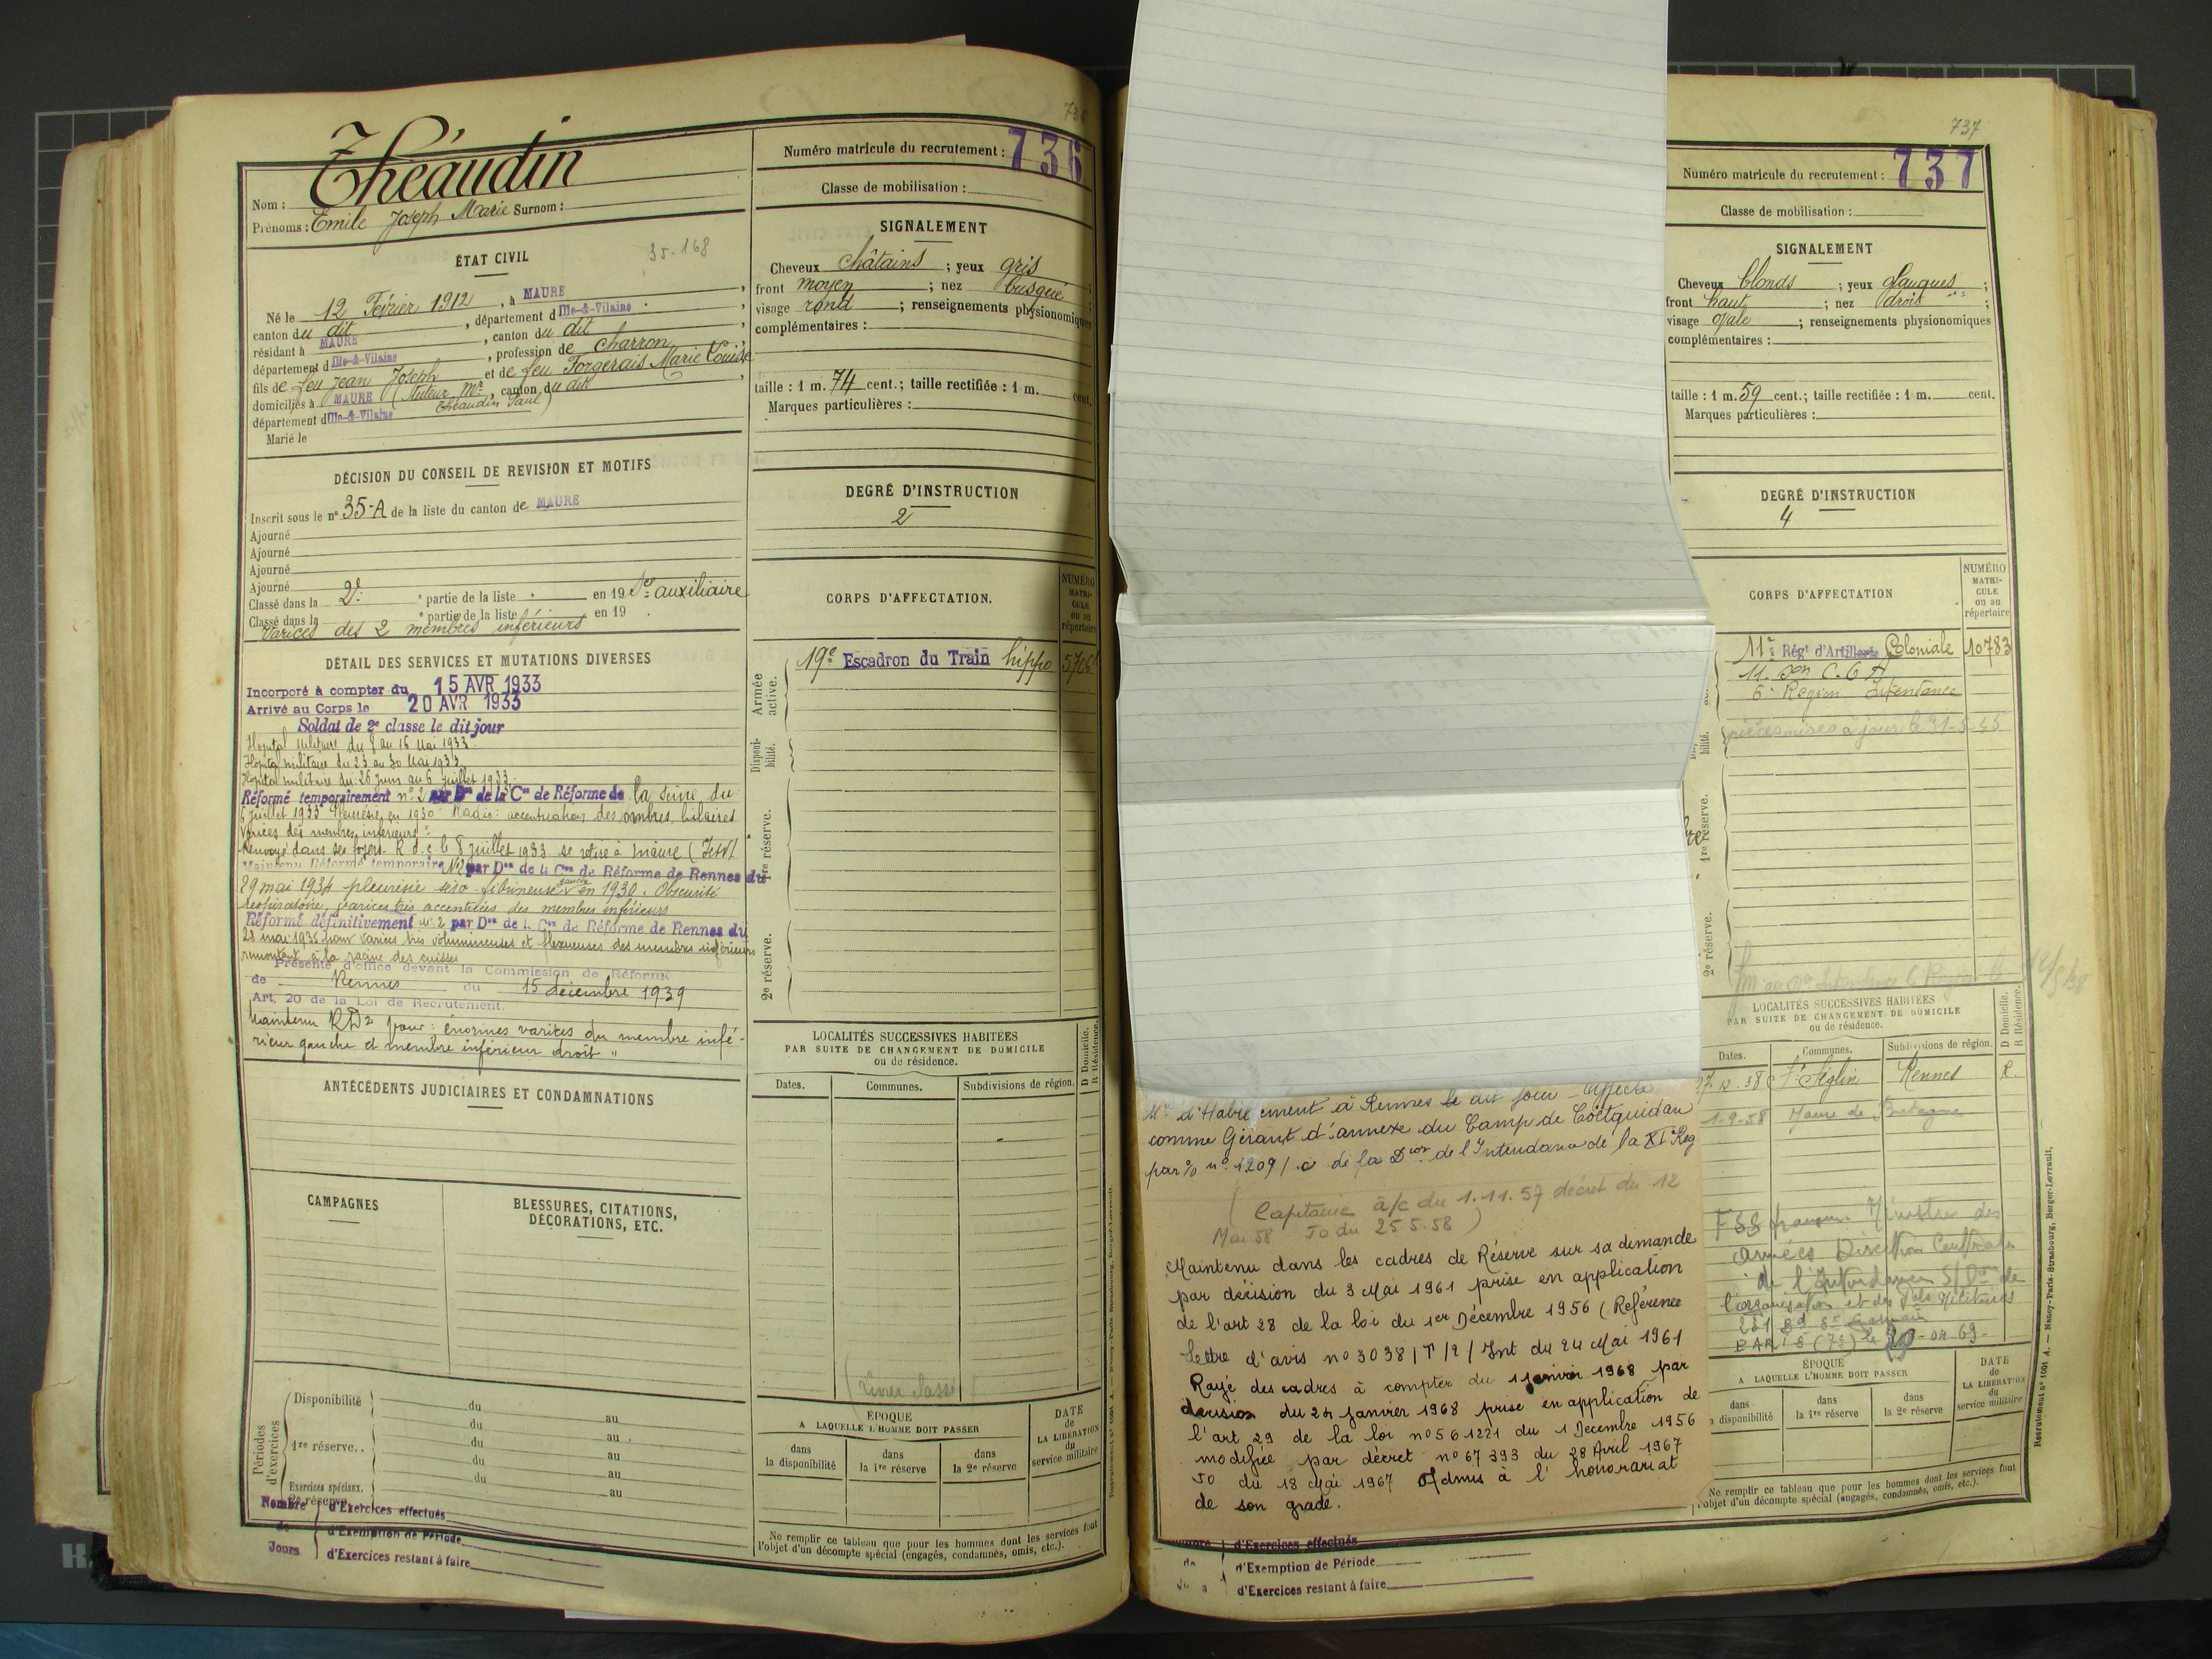 736
Théaudin
Nom :
Prénoms : Emile Joseph Marie Surnom :
ÉTAT CIVIL
35-168
Né le 12 Février 1912, à MAURE
canton du dit, département d'Ille-&-Vilaine.
résidant à MAURE, canton du dit
département d'Ille-&-Vilaine, profession de charron
fils de feu Jean Joseph et de feu Forgerais Marie Louise
domiciliés à MAURE (Tuteur Mr Théaudin Paul), canton du dit
département d'Ille-&-Vilaine
Marié le
DÉCISION DU CONSEIL DE REVISION ET MOTIFS
Inscrit sous le n° 35-A de la liste du canton de MAURE
Ajourné
Ajourné
Ajourné
Ajourné
Classé dans la 2e partie de la liste en 19 Sce auxiliaire
Classé dans la partie de la liste en 19
Varices des 2 membres inférieurs
DÉTAIL DES SERVICES ET MUTATIONS DIVERSES
Incorporé à compter du 15 AVR 1933
Arrivé au Corps le 20 AVR 1933
Soldat de 2e classe le dit jour
Hopital militaire du 8 au 16 Mai 1933.
Hopital militaire du 23 au 30 Mai 1933.
Hopital militaire du 26 juin au 6 juillet 1933.
Réformé temporairement n° 2 par Don de la Con de Réforme de la Seine du
6 juillet 1933 Pleurésie en 1930 Radio: accentuation des ombres hilaires
Varices des membres inférieurs
Renvoyé dans ses foyers R.d.c le 8 juillet 1933 se retire à Maure (I et V)
Maintenu Réformé temporaire N°2 par Don de la Con de Réforme de Rennes du
29 mai 1934 pleurésie séro fibrineuse gauche en 1930. Obscurité
respiratoire, varices très accentuées des membres inférieurs
Réformé définitivement n° 2 par Don de la Con de Réforme de Rennes du
28 mai 1935 pour varices très volumineuses et flexueuses des membres inférieurs
remontant à la racine des cuisses
Présenté d'office devant la Commission de Réforme
de Rennes du 15 décembre 1939
Art. 20 de la Loi de Recrutement.
Maintenu RD2 pour : énormes varices du membre infé-
rieur gauche et membre inférieur droit "
ANTÉCÉDENTS JUDICIAIRES ET CONDAMNATIONS
CAMPAGNES
BLESSURES, CITATIONS, DÉCORATIONS, ETC.
Périodes d'exercices
Disponibilité du au
du au
1re réserve.. du au
du au
Exercices spéciaux. du au
2e réserve
Nombre de Jours
d'Exercices effectués
d'Exemption de Période
d'Exercices restant à faire
Numéro matricule du recrutement : 736
Classe de mobilisation :
SIGNALEMENT
Cheveux châtains ; yeux gris
front moyen ; nez busqué
visage rond ; renseignements physionomiques
complémentaires :
taille : 1 m. 74 cent.; taille rectifiée : 1 m. cent.
Marques particulières :
DEGRÉ D'INSTRUCTION
2
CORPS D'AFFECTATION.
NUMÉRO MATRI-CULE ou au répertoire
Armée active.
19e Escadron du Train hippo
Disponi-bilité.
1re réserve.
2e réserve.
LOCALITÉS SUCCESSIVES HABITÉES
PAR SUITE DE CHANGEMENT DE DOMICILE
ou de résidence.
D Domicile. R Résidence.
Dates. Communes. Subdivisions de région.
ÉPOQUE
A LAQUELLE L'HOMME DOIT PASSER
DATE de LA LIBÉRATION du service militaire
dans la disponibilité
dans la 1re réserve
dans la 2e réserve
Ne remplir ce tableau que pour les hommes dont les services font
l'objet d'un décompte spécial (engagés, condamnés, omis, etc.).
Mn d'Habillement à Rennes le dit jour Affecté
comme Gérant d'annexe du Camp de Coëtquidan
par % n° 1209/c de la Dion de l'Intendance de la XI Reg
( Capitaine à/c du 1.11.57 décret du 12
Mai 58 Jo du 25.5.58 )
Maintenu dans les cadres de Réserve sur sa demande
par décision du 3 Mai 1961 prise en application
de l'art 28 de la loi du 1er Décembre 1956 (Reférence
lettre d'avis n° 3038/T/2/Int du 24 Mai 1961
Rayé des cadres à compter du 1 janvier 1968 par
décision du 24 janvier 1968 prise en application de
l'art 29 de la loi n° 56 1221 du 1 Decembre 1956
modifiée par décret n° 67 393 du 28 Avril 1967
Jo du 18 Mai 1967 Admis à l'honorariat
de son grade.
d'Exercices effectués
d'Exemption de Période
d'Exercices restant à faire
737
Numéro matricule du recrutement : 737
Classe de mobilisation :
SIGNALEMENT
Cheveux blonds ; yeux glauques ;
front haut ; nez droit ;
visage ovale ; renseignements physionomiques
complémentaires :
taille : 1 m. 59 cent.; taille rectifiée : 1 m. cent.
Marques particulières :
DEGRÉ D'INSTRUCTION
4
CORPS D'AFFECTATION
NUMÉRO MATRI-CULE ou au répertoire
11e Régt d'Artillerie Coloniale 10783
11e Son C.O.A
6e Région Intendance
pièces mises à jour le 31-5-45
bilité.
1re réserve.
2e réserve.
LOCALITÉS SUCCESSIVES HABITÉES
PAR SUITE DE CHANGEMENT DE DOMICILE
ou de résidence.
D Domicile. R Résidence.
Dates. Communes. Subdivisions de région.
St Séglin Rennes R.
1-9-58 Maure de Bretagne
Ministre des
Armées Direction Centrale
de l'Intendance S/Don de
l'organisation et des Pels Militaires
231 Bd St Germain
PARIS (7e)
ÉPOQUE
A LAQUELLE L'HOMME DOIT PASSER
DATE de LA LIBÉRATION du service militaire
dans la disponibilité
dans la 1re réserve
dans la 2e réserve
Ne remplir ce tableau que pour les hommes dont les services font
l'objet d'un décompte spécial (engagés, condamnés, omis, etc.).
Recrutement n° 1001 A. — Nancy-Paris-Strasbourg, Berger-Levrault.